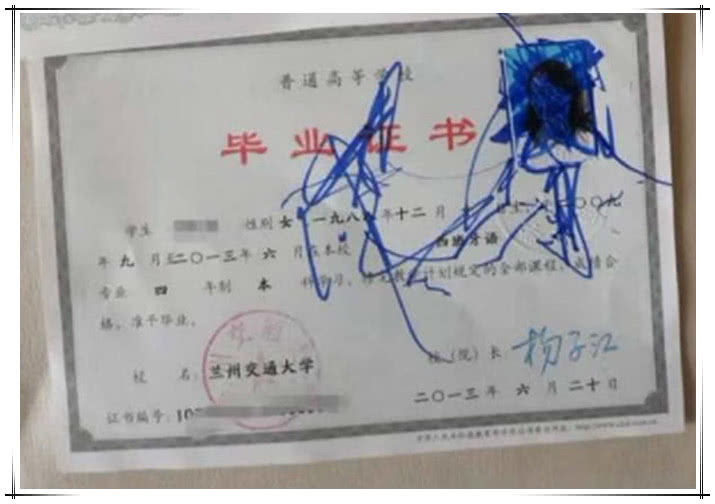 普通高等学校
毕业证书
学生 性别 女 一九八八年十二月 二〇〇九
年 九 月至二〇一三年 六 月在本校 西班牙语
专业 四 年制 本 科学习，修完教学计划规定的全部课程，成绩合
格，准予毕业。
校 名：兰州交通大学 校（院）长 杨子江
二〇一三年 六 月 二十日
证书编号：10